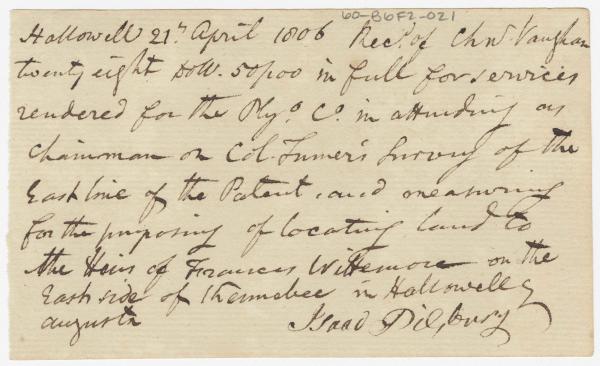 60-B6F2-021
Hallowell 21st April 1806 Recd. of Chs. Vaughan
twenty eight Doll. 50/100 in full for services
rendered for the Plyo. Co. in attending as
chainman on Col. Turner's Survey of the
East line of the Patent, and measuring
for the purposing of locating land to
the Heirs of Frances Wittemore on the
East side of Kennebec in Hallowell &
augusta
Isaac Pilsbury